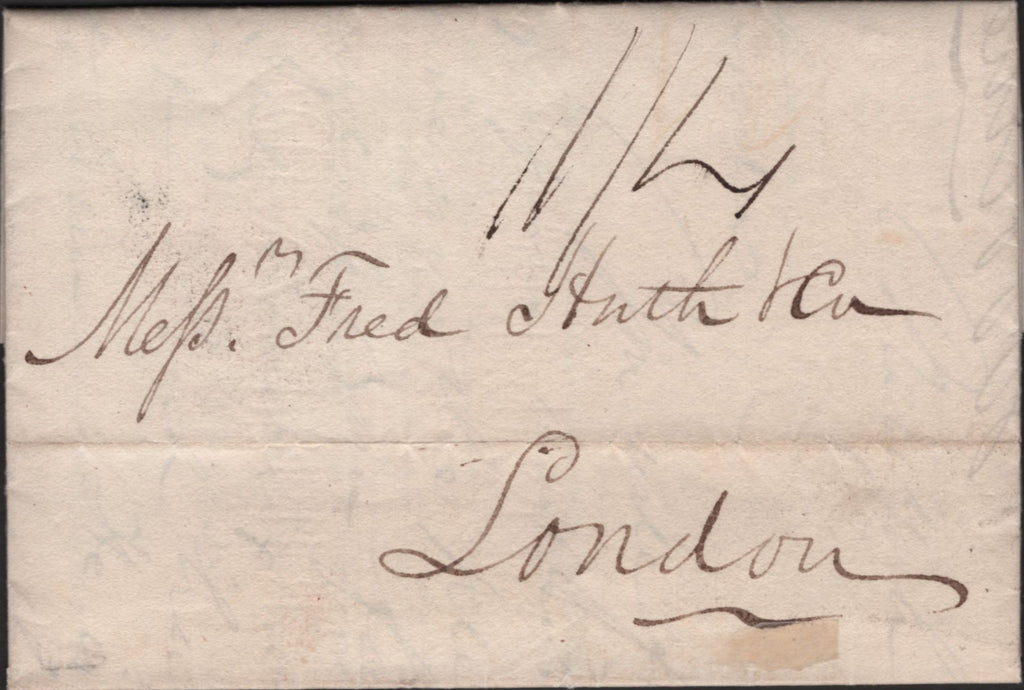 1/4
Mess.rs Fred Huth & Co
London